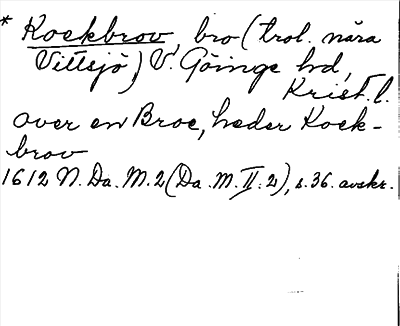 * Kockbrov, bro (trol. nära
Vittsjö) V. Göinge hd,
Krist. l.
over en Broe, heder Kock-
brov
1612 N. Da. M. 2 (Da. M. II. 2), s. 36. avskr.